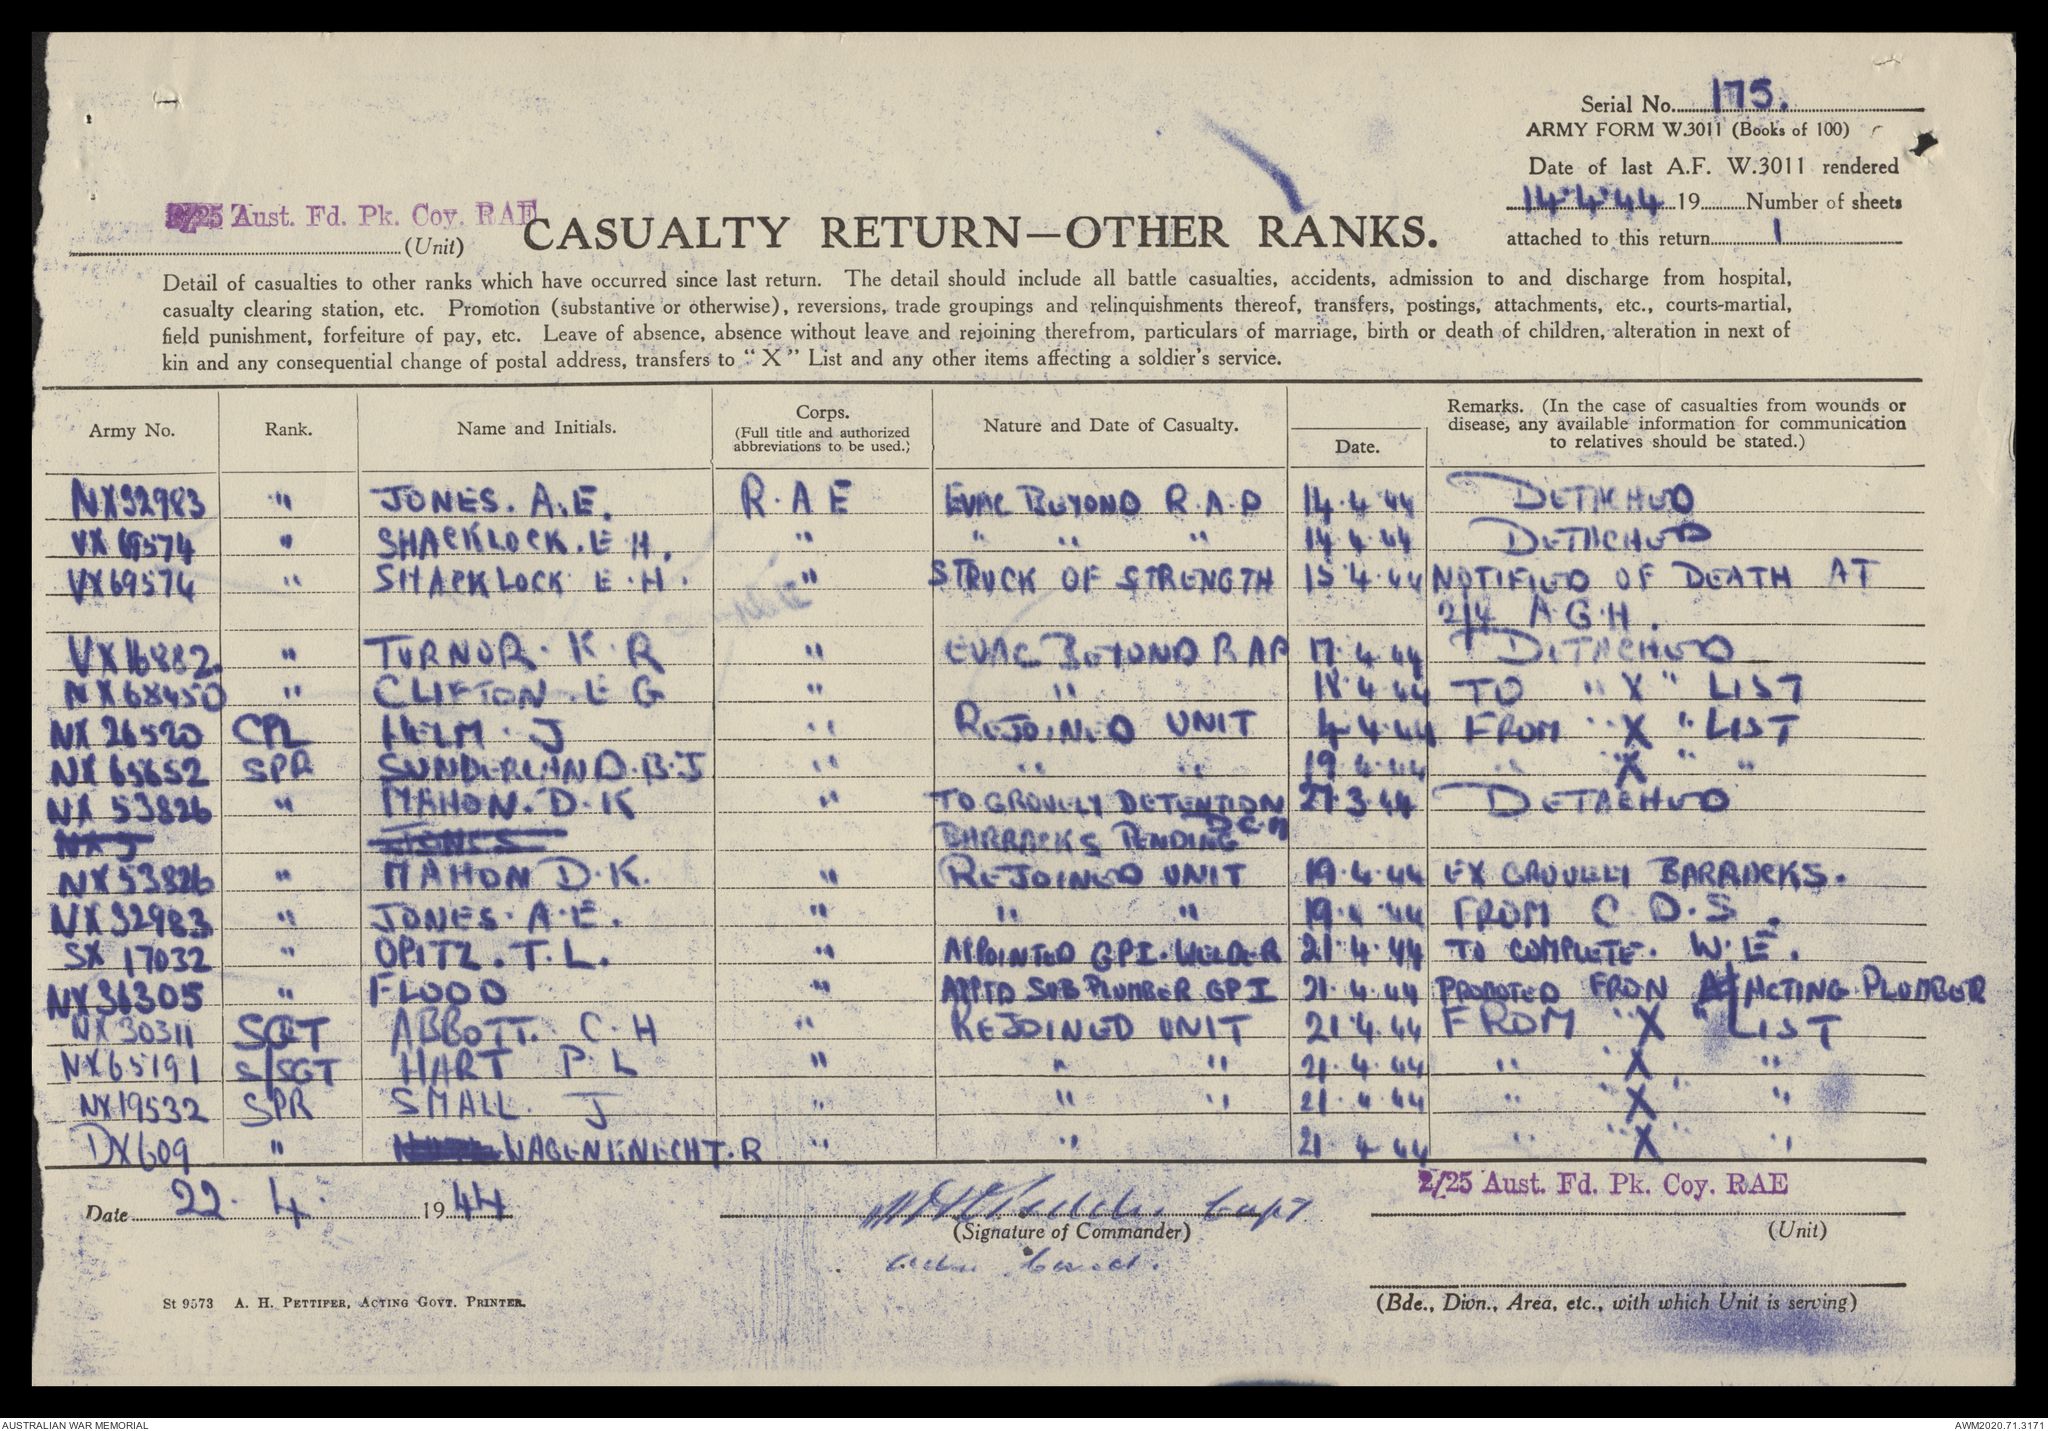 Serial No. 175.
ARMY FORM W.3011 (Books of 100)
Date of last A.F. W.3011 rendered
14.4.44 19 Number of sheets
attached to this return 1
2/25 Aust. Fd. Pk. Coy. RAE
(Unit)
CASUALTY RETURN—OTHER RANKS.
Detail of casualties to other ranks which have occurred since last return. The detail should include all battle casualties, accidents, admission to and discharge from hospital,
casualty clearing station, etc. Promotion (substantive or otherwise), reversions, trade groupings and relinquishments thereof, transfers, postings, attachments, etc., courts-martial,
field punishment, forfeiture of pay, etc. Leave of absence, absence without leave and rejoining therefrom, particulars of marriage, birth or death of children, alteration in next of
kin and any consequential change of postal address, transfers to "X" List and any other items affecting a soldier's service.
Army No. Rank. Name and Initials. Corps. (Full title and authorized abbreviations to be used.) Nature and Date of Casualty. Date. Remarks. (In the case of casualties from wounds or disease, any available information for communication to relatives should be stated.)
NX32983 " JONES. A.E. R.A E EVAC BEYOND R.A.P 14.4.44 DETACHED
VX 69574 " SHACKLOCK. E H. " " " " 14.4.44 DETACHED
VX69574 " SHACKLOCK E.H. " STRUCK OF STRENGTH 15.4.44 NOTIFIED OF DEATH AT
2/4 A.G.H.
VX16882. " TURNOR. K.R " EVAC BEYOND RAP 17.4.44 DETACHED
NX68450 " CLIFTON. E G " " 18.4.44 TO "X" LIST
NX 26520 CPL HELM. J " REJOINED UNIT 4.4.44 FROM "X" LIST
NX 65652 SPR SUNDERLAND. B.J " " " 19.4.44 " "X" "
NX 53826 " MAHON. D.K " TO GROVELY DETENTION 27.3.44 DETACHED
NX J JONES BARRACKS PENDING D.C.M
NX53826 " MAHON D.K. " REJOINED UNIT 19.4.44 EX GROVELY BARRACKS.
NX32983 " JONES. A.E. " " " 19.4.44 FROM C D.S.
SX 17032 " OPITZ. T.L. " APPOINTED GPI. WELDER 21.4.44 TO COMPLETE. W.E.
NX36305 " FLOOD " APPTD SUB PLUMBER GPI 21.4.44 PROMOTED FROM ACTING PLUMBER
NX 30311 SGT ABBOTT. C.H " REJOINED UNIT 21.4.44 FROM "X" LIST
NX65191 S/SGT HART P.L " " " 21.4.44 " "X" "
NX19532 SPR SMALL. J " " " 21.4.44 " "X" "
DX609 " WAGENKNECHT. R " " 21.4.44 " "X" "
Date 22.4. 19 44
Capt
(Signature of Commander)
2/25 Aust. Fd. Pk. Coy. RAE
(Unit)
St 9573 A. H. PETTIFER, ACTING GOVT. PRINTER.
(Bde., Divn., Area, etc., with which Unit is serving)
AUSTRALIAN WAR MEMORIAL AWM2020.71.3171